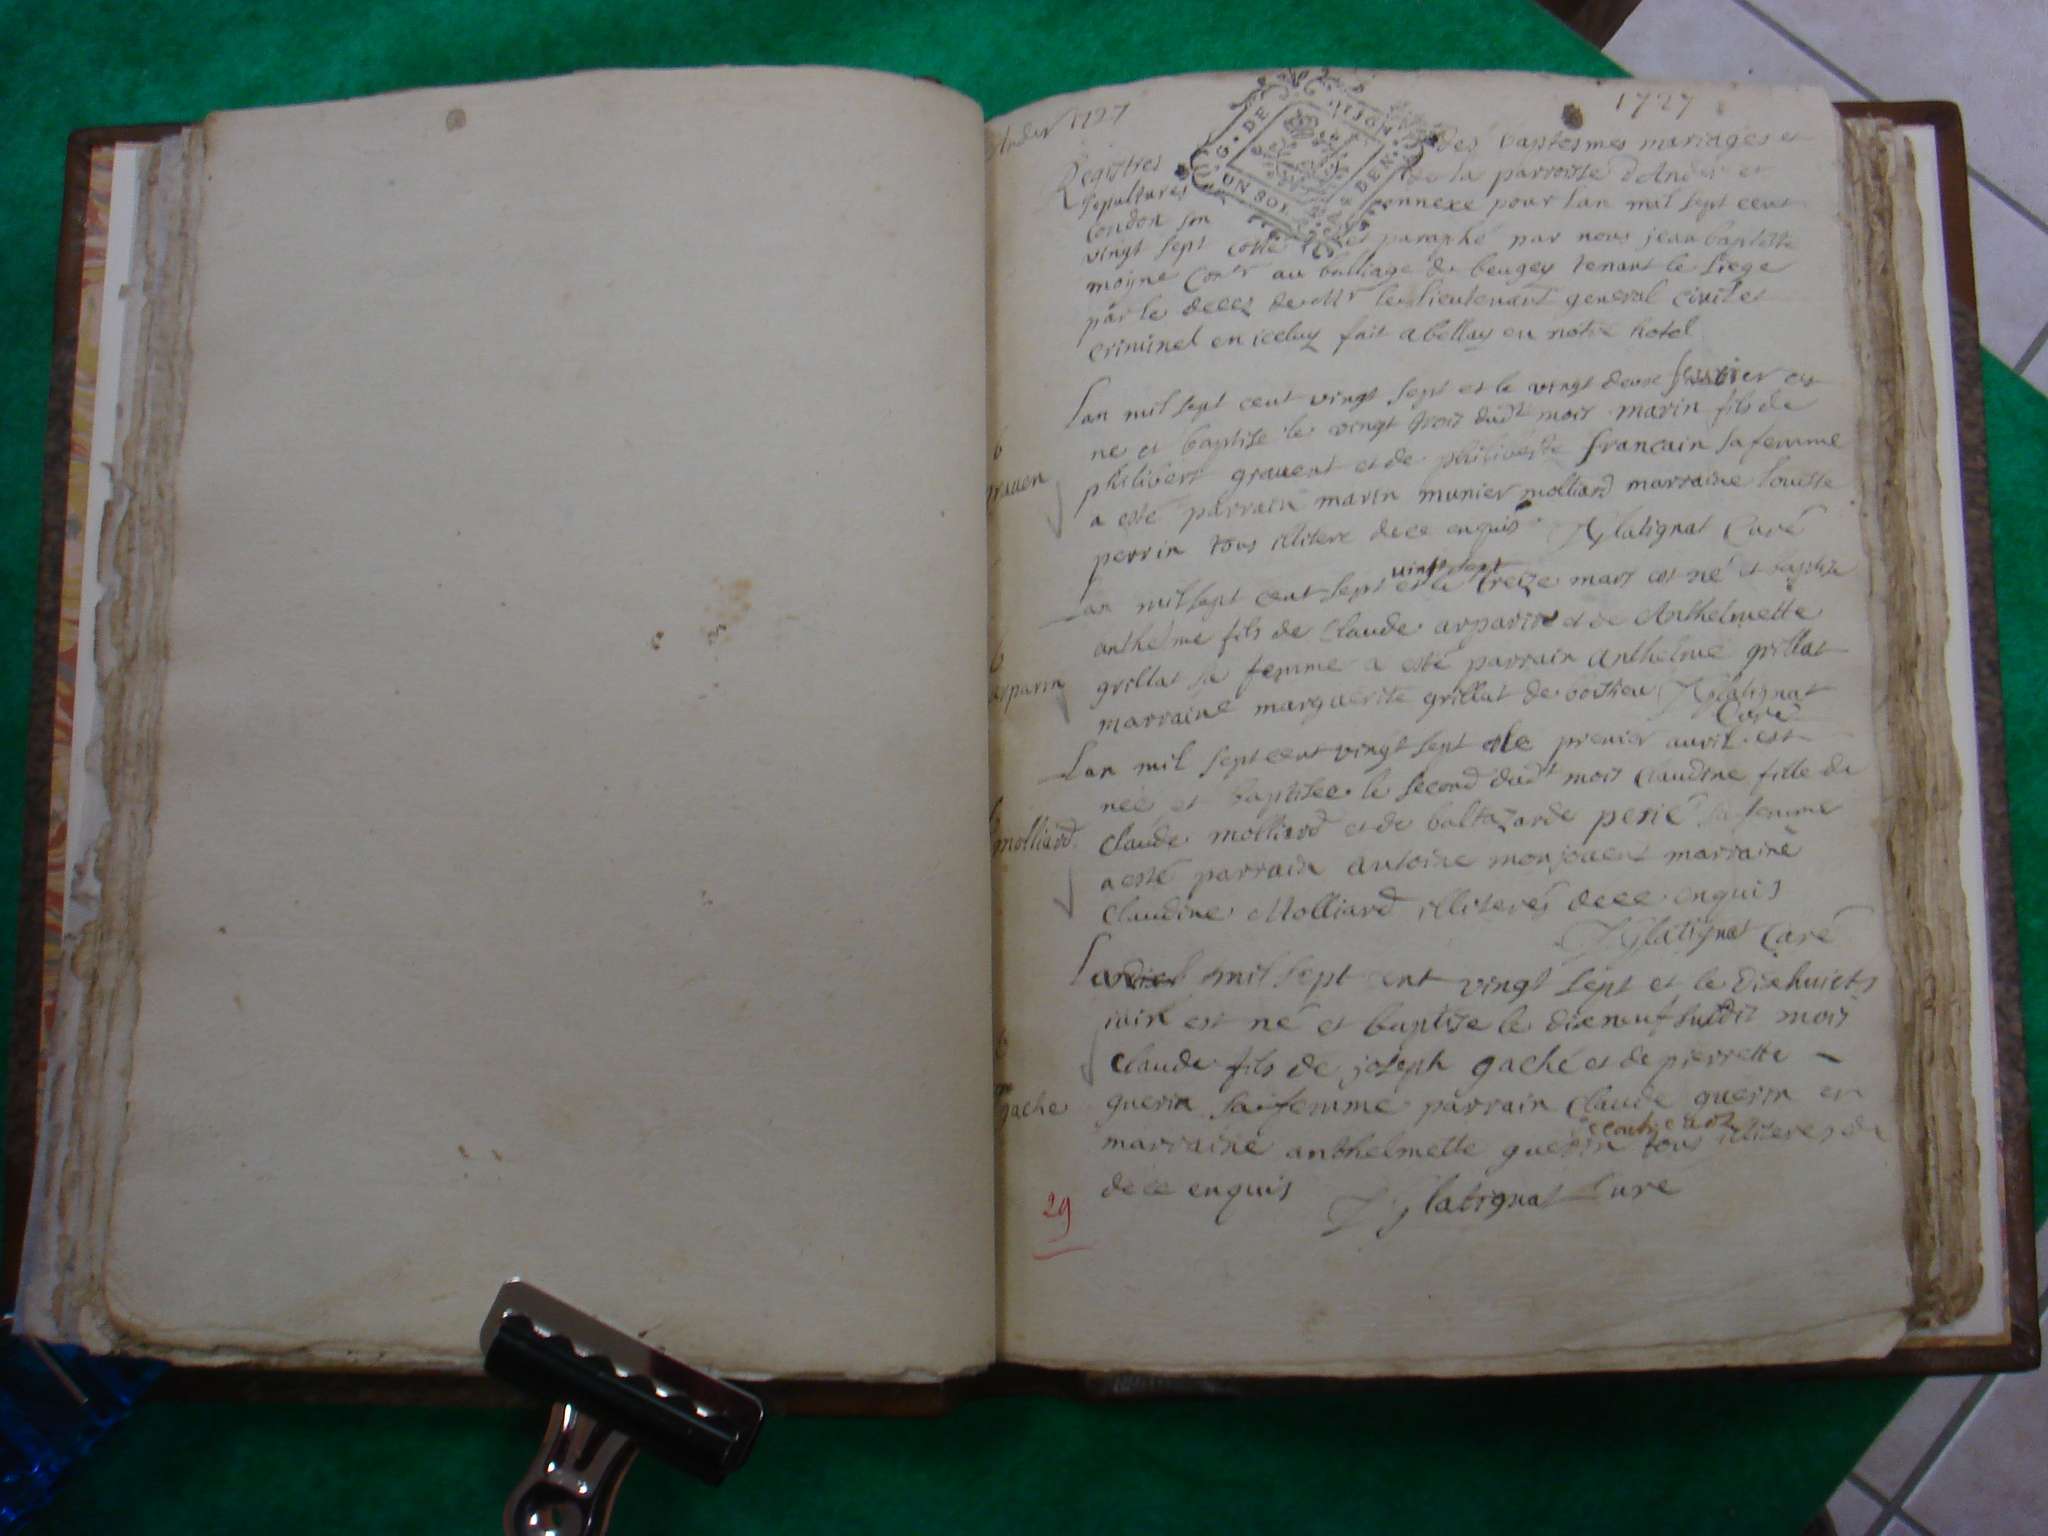 Ander 1727
1727
Registres des baptesmes mariages et
sepultures de la parroisse dAnder et
Condon son annexe pour lan mil sept cent
vingt sept cotté et paraphé par nous jean baptiste
moyne Con.er au balliage de beugey tenant le siege
par le deces de Mr le Lieutenant general civil et
criminel en iceluy fait a bellay en notre hotel
G. DE DIJON
UN SOL
DEN.
Lan mil sept cent vingt sept et le vingt deux feurier est
né et baptise le vingt trois dudt mois marin fils de
b
grauen
philibert grauent et de philiberte francain sa femme
a esté parrain marin munier molliard marraine Louise
perrin tous illitere de ce enquis Glatignat Curé
vingt sept
Lan mil sept cent sept et le treize mars est né et baptize
anthelme fils de Claude arparin et de Anthelmette
b
arparin
grillat sa femme a esté parrain anthelme grillat
marraine marguerite grillat de Glatignat
Curé
Lan mil sept cent vingt sept et le premier auril est
née et baptisee le second dudt mois Claudine fille de
b
molliard
Claude molliard et de baltazarde perié sa femme
a esté parrain antoine monjouent marraine
Claudine Molliard illiterés de ce enquis
Glatignat Curé
Lan mil sept cent vingt sept et le dixhuict
iuin est né et baptise le dixneuf susdit mois
b
gache
Claude fils de joseph gaché et de pierrette
guerin sa femme parrain Claude guerin et
marraine anthelmette guerin tous illiteres de
de ce enquis Glatignat Curé
29